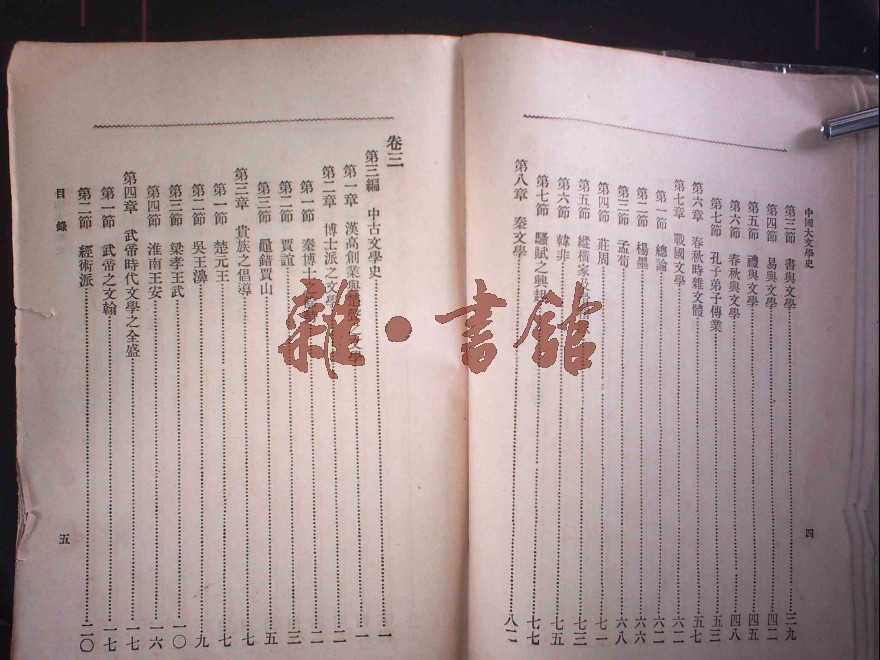 中國大文學史
第三節 書與文學 三九
第四節 易與文學 四二
第五節 禮與文學 四五
第六節 春秋與文學 四八
第七節 孔子弟子傳業 五三
第六章 春秋時雜文體 五七
第七章 戰國文學 六二
第一節 總論 六二
第二節 楊墨 六六
第三節 孟荀 六八
第四節 莊周 七一
第五節 縱橫家 七三
第六節 韓非 七五
第七節 騷賦之興起 七七
第八章 秦文學 八二
四
卷三
第三編 中古文學史 一
第一章 漢高創業與 文學 一
第二章 博士派之文學 二
第一節 秦博士之 二
第二節 賈誼 三
第三節 鼂錯賈山 五
第三章 貴族之倡導 七
第一節 楚元王 七
第二節 吳王濞 九
第三節 梁孝王武 一〇
第四節 淮南王安 一六
第四章 武帝時代文學之全盛 一七
第一節 武帝之文翰 一七
第二節 經術派 二〇
目錄
五
雜·書館